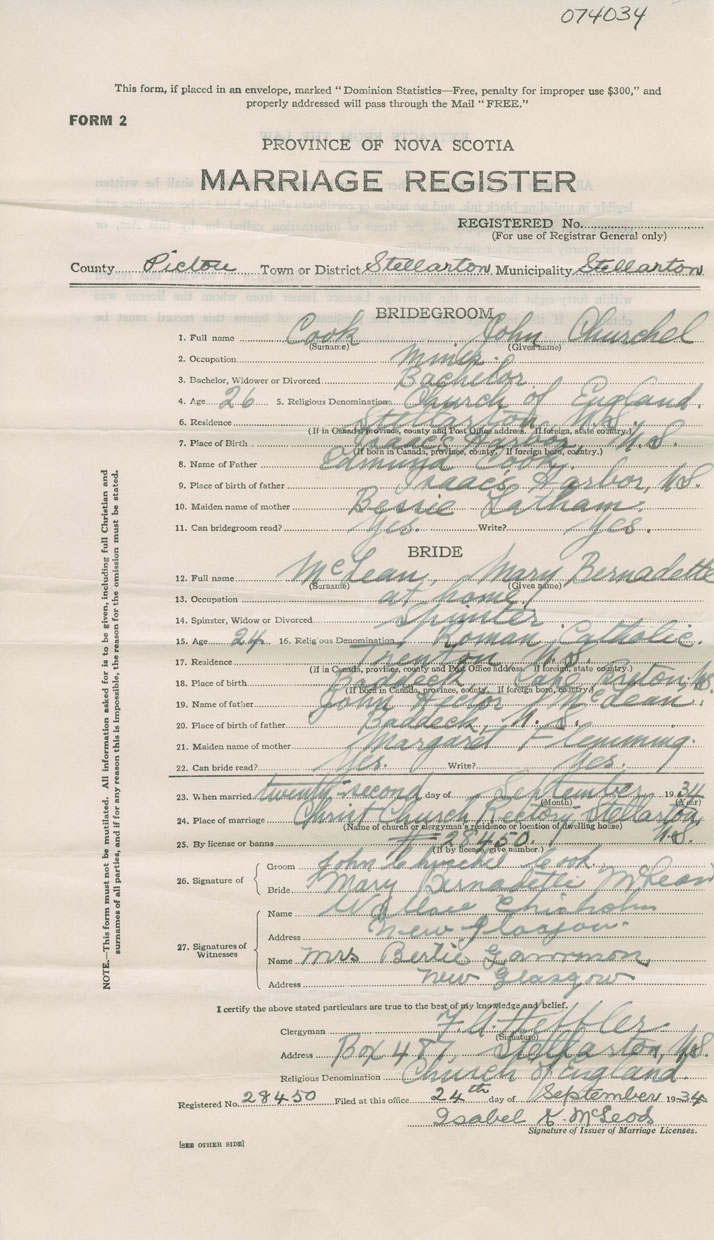 074034
This form, if placed in an envelope, marked "Dominion Statistics—Free, penalty for improper use $300," and
properly addressed will pass through the Mail "FREE."
FORM 2
PROVINCE OF NOVA SCOTIA
MARRIAGE REGISTER
REGISTERED No.
(For use of Registrar General only)
County Pictou Town or District Stellarton Municipality Stellarton
BRIDEGROOM
1. Full name Cook John Churchel
(Surname) (Given name)
2. Occupation miner.
3. Bachelor, Widower or Divorced Bachelor
4. Age 26 5. Religious Denomination Church of England.
6. Residence Stellarton N.S.
(If in Canada, province, county and Post Office address. If foreign, state country.)
7. Place of Birth Isaac's Harbor, N.S.
(If born in Canada, province, county. If foreign born, country.)
8. Name of Father Edmund Cook
9. Place of birth of father Isaac's Harbor, N.S.
10. Maiden name of mother Bessie Latham.
11. Can bridegroom read? Yes. Write? Yes.
BRIDE
12. Full name McLean, Mary Bernadette
(Surname) (Given name)
13. Occupation at home
14. Spinster, Widow or Divorced Spinter
15. Age 24 16. Religious Denomination Roman Catholic.
17. Residence Trenton N.S.
(If in Canada, province, county and Post Office address. If foreign, state country.)
18. Place of birth Baddeck, Cape Breton, N.S.
(If born in Canada, province, county. If foreign born, country.)
19. Name of father John Hector McLean.
20. Place of birth of father Baddeck, N.S.
21. Maiden name of mother Margaret Flemming.
22. Can bride read? Yes. Write? Yes.
23. When married twenty-second day of September 1934
(Month) (Year)
24. Place of marriage Christ Church Rectory, Stellarton,
(Name of church or clergyman's residence or location of dwelling house)
N.S.
25. By license or banns # 28450.
(If by license, give number.)
26. Signature of
Groom John Churchel Cook
Bride Mary Bernadette McLean
27. Signatures of Witnesses
Name Wallace Chisholm
Address New Glasgow.
Name Mrs Bertie Gammon
Address New Glasgow
I certify the above stated particulars are true to the best of my knowledge and belief.
Clergyman
(Signature)
Address Box 487, Stellarton, N.S.
Religious Denomination Church of England.
Registered No. 28450 Filed at this office 24th day of September 1934
Isabel K. McLeod
Signature of Issuer of Marriage Licenses.
[SEE OTHER SIDE]
NOTE.—This form must not be mutilated. All information asked for is to be given, including full Christian and
surnames of all parties, and if for any reason this is impossible, the reason for the omission must be stated.